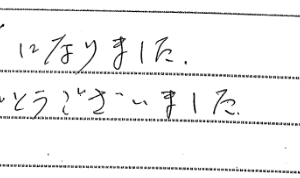 になりました.
とうございました